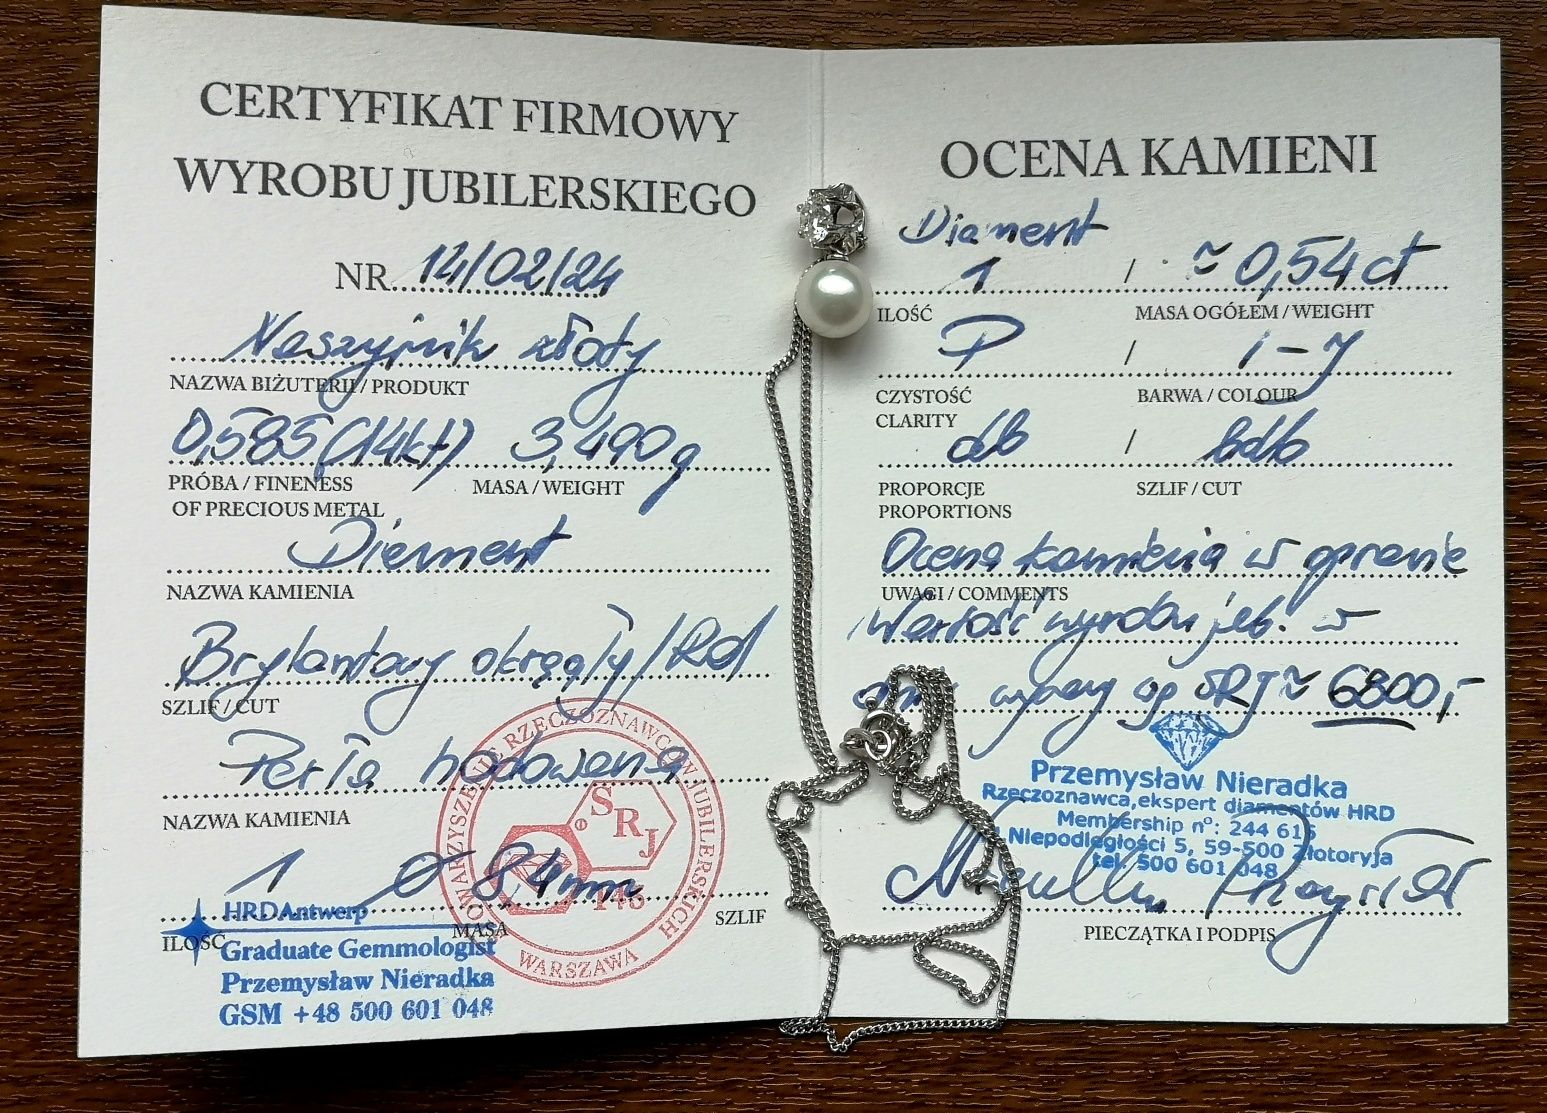 CERTYFIKAT FIRMOWY
WYROBU JUBILERSKIEGO
NR. 14/02/24
Naszyjnik złoty
NAZWA BIŻUTERII / PRODUKT
0,585 (14kt) 3,490g
PRÓBA / FINENESS MASA / WEIGHT
OF PRECIOUS METAL
Diament
NAZWA KAMIENIA
Brylantowy okrągły/Rd
SZLIF / CUT
Perła hodowana
NAZWA KAMIENIA
1 Ø 8,4mm
ILOŚĆ MASA SZLIF
HRD Antwerp
Graduate Gemmologist
Przemysław Nieradka
GSM +48 500 601 048
STOWARZYSZENIE RZECZOZNAWCÓW JUBILERSKICH
WARSZAWA
SRJ
146
OCENA KAMIENI
Diament
1 / ≈ 0,54 ct
ILOŚĆ MASA OGÓŁEM / WEIGHT
P / I-J
CZYSTOŚĆ BARWA / COLOUR
CLARITY
db / bdb
PROPORCJE SZLIF / CUT
PROPORTIONS
Ocena kamienia w oprawie
UWAGI / COMMENTS
Wartość wyrobu jub. w
wyceny wg SRJ ≈ 6800,-
Przemysław Nieradka
Rzeczoznawca, ekspert diamentów HRD
Membership nº: 244 616
Niepodległości 5, 59-500 Złotoryja
tel. 500 601 048
PIECZĄTKA I PODPIS